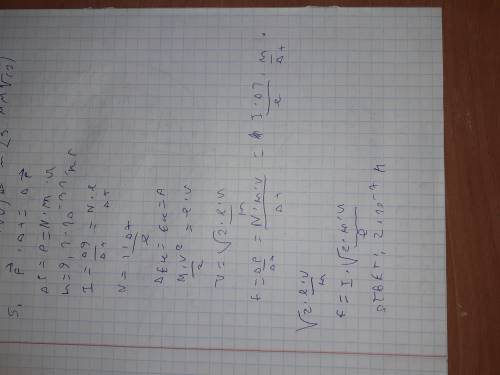 5. F⃗ · Δt = Δ P⃗
ΔP = P = N · m · v
m = 9,1 · 10⁻³¹ кг
I = Δq/Δt = N · e/Δt
N = I · Δt/e
ΔEк = Eк = A
m · v²/2 = e · U
v = √2 · e · U/m
F = ΔP/Δt = N · m · v/Δt = I · Δt/e · m/Δt ·
√2 · e · U/m
F = I · √2 · m · U/e
ОТВЕТ: 2 · 10⁻⁷ Н